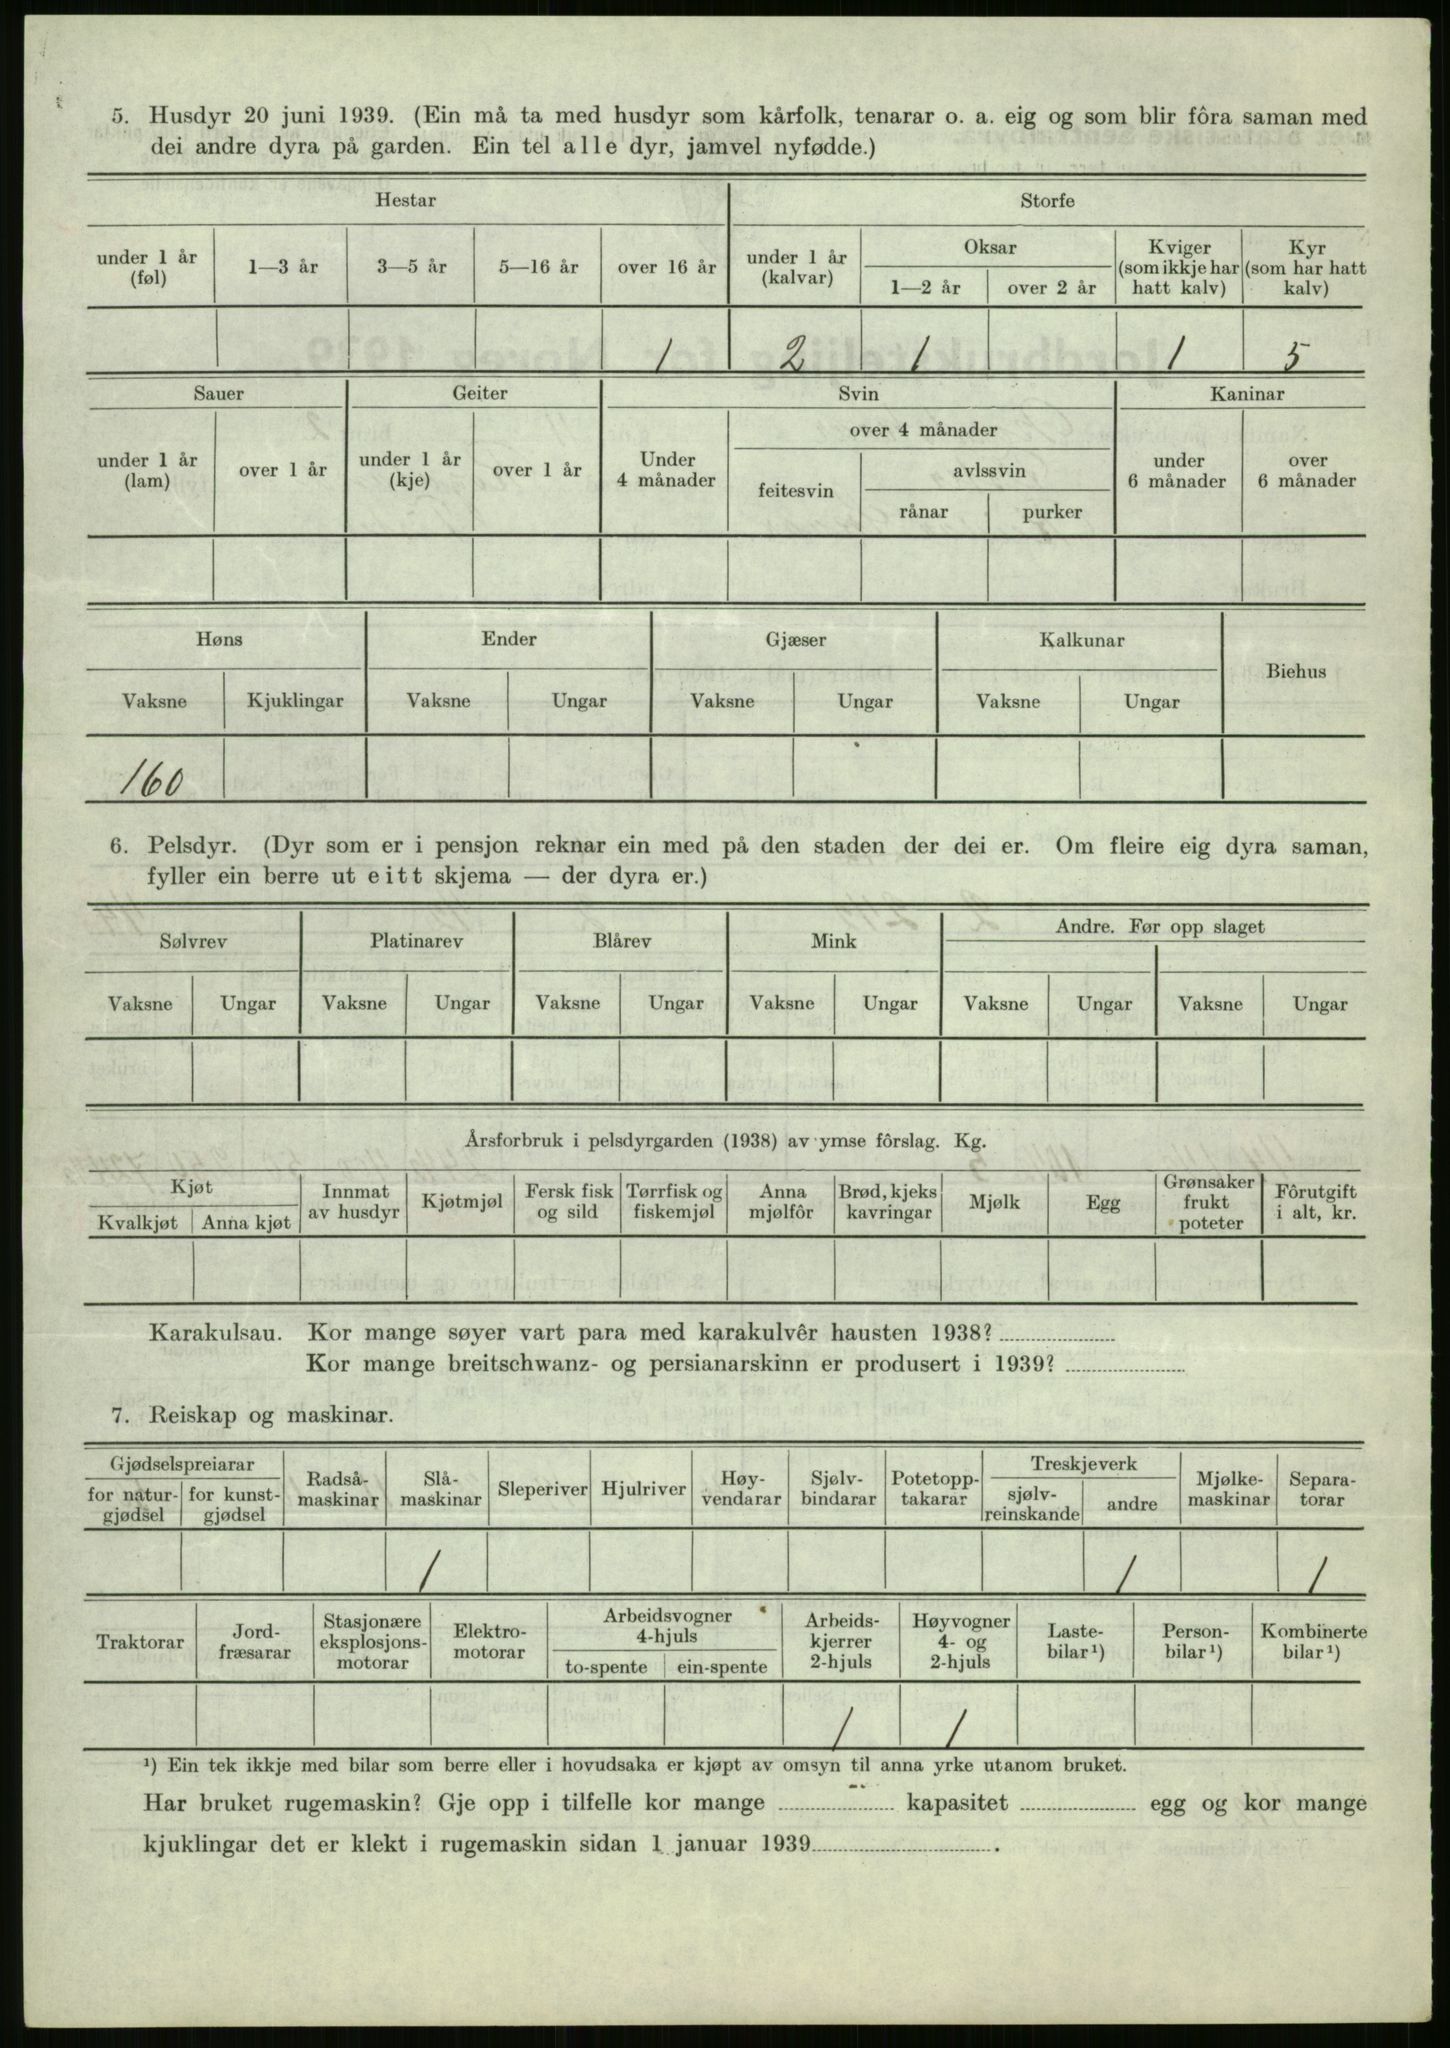 5. Husdyr 20 juni 1939. (Ein må ta med husdyr som kårfolk, tenarar o. a. eig og som blir fôra saman med
dei andre dyra på garden. Ein tel alle dyr, jamvel nyfødde.)
Hestar Storfe
under 1 år (føl) 1—3 år 3—5 år 5—16 år over 16 år under 1 år (kalvar) Oksar 1—2 år over 2 år Kviger (som ikkje har hatt kalv) Kyr (som har hatt kalv)
1 2 1 1 5
Sauer Geiter Svin Kaninar
under 1 år (lam) over 1 år under 1 år (kje) over 1 år Under 4 månader over 4 månader feitesvin avlssvin rånar purker under 6 månader over 6 månader
Høns Ender Gjæser Kalkunar Biehus
Vaksne Kjuklingar Vaksne Ungar Vaksne Ungar Vaksne Ungar
160
6. Pelsdyr. (Dyr som er i pensjon reknar ein med på den staden der dei er. Om fleire eig dyra saman,
fyller ein berre ut eitt skjema — der dyra er.)
Sølvrev Platinarev Blårev Mink Andre. Før opp slaget
Vaksne Ungar Vaksne Ungar Vaksne Ungar Vaksne Ungar Vaksne Ungar Vaksne Ungar
Årsforbruk i pelsdyrgarden (1938) av ymse fôrslag. Kg.
Kjøt Kvalkjøt Anna kjøt Innmat av husdyr Kjøtmjøl Fersk fisk og sild Tørrfisk og fiskemjøl Anna mjølfôr Brød, kjeks kavringar Mjølk Egg Grønsaker frukt poteter Fôrutgift i alt, kr.
Karakulsau. Kor mange søyer vart para med karakulvêr hausten 1938?
Kor mange breitschwanz- og persianarskinn er produsert i 1939?
7. Reiskap og maskinar.
Gjødselspreiarar for natur-gjødsel for kunst-gjødsel Radså-maskinar Slå-maskinar Sleperiver Hjulriver Høy-vendarar Sjølv-bindarar Potetopp-takarar Treskjeverk sjølv-reinskande andre Mjølke-maskinar Separa-torar
1 1 1
Traktorar Jord-fræsarar Stasjonære eksplosjons-motorar Elektro-motorar Arbeidsvogner 4-hjuls to-spente ein-spente Arbeids-kjerrer 2-hjuls Høyvogner 4- og 2-hjuls Laste-bilar¹) Person-bilar¹) Kombinerte bilar¹)
1 1
¹) Ein tek ikkje med bilar som berre eller i hovudsaka er kjøpt av omsyn til anna yrke utanom bruket.
Har bruket rugemaskin? Gje opp i tilfelle kor mange kapasitet egg og kor mange
kjuklingar det er klekt i rugemaskin sidan 1 januar 1939 .